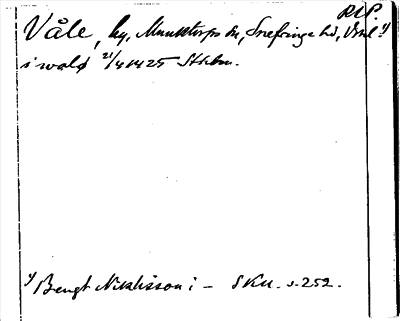 RAP.
Våle, by, Munktorps sn, Snefringe hd, Vml. 1)
i wald 21/4 1425 Sthlm.
1) Bengt Niklisson i – SKU. s. 252.